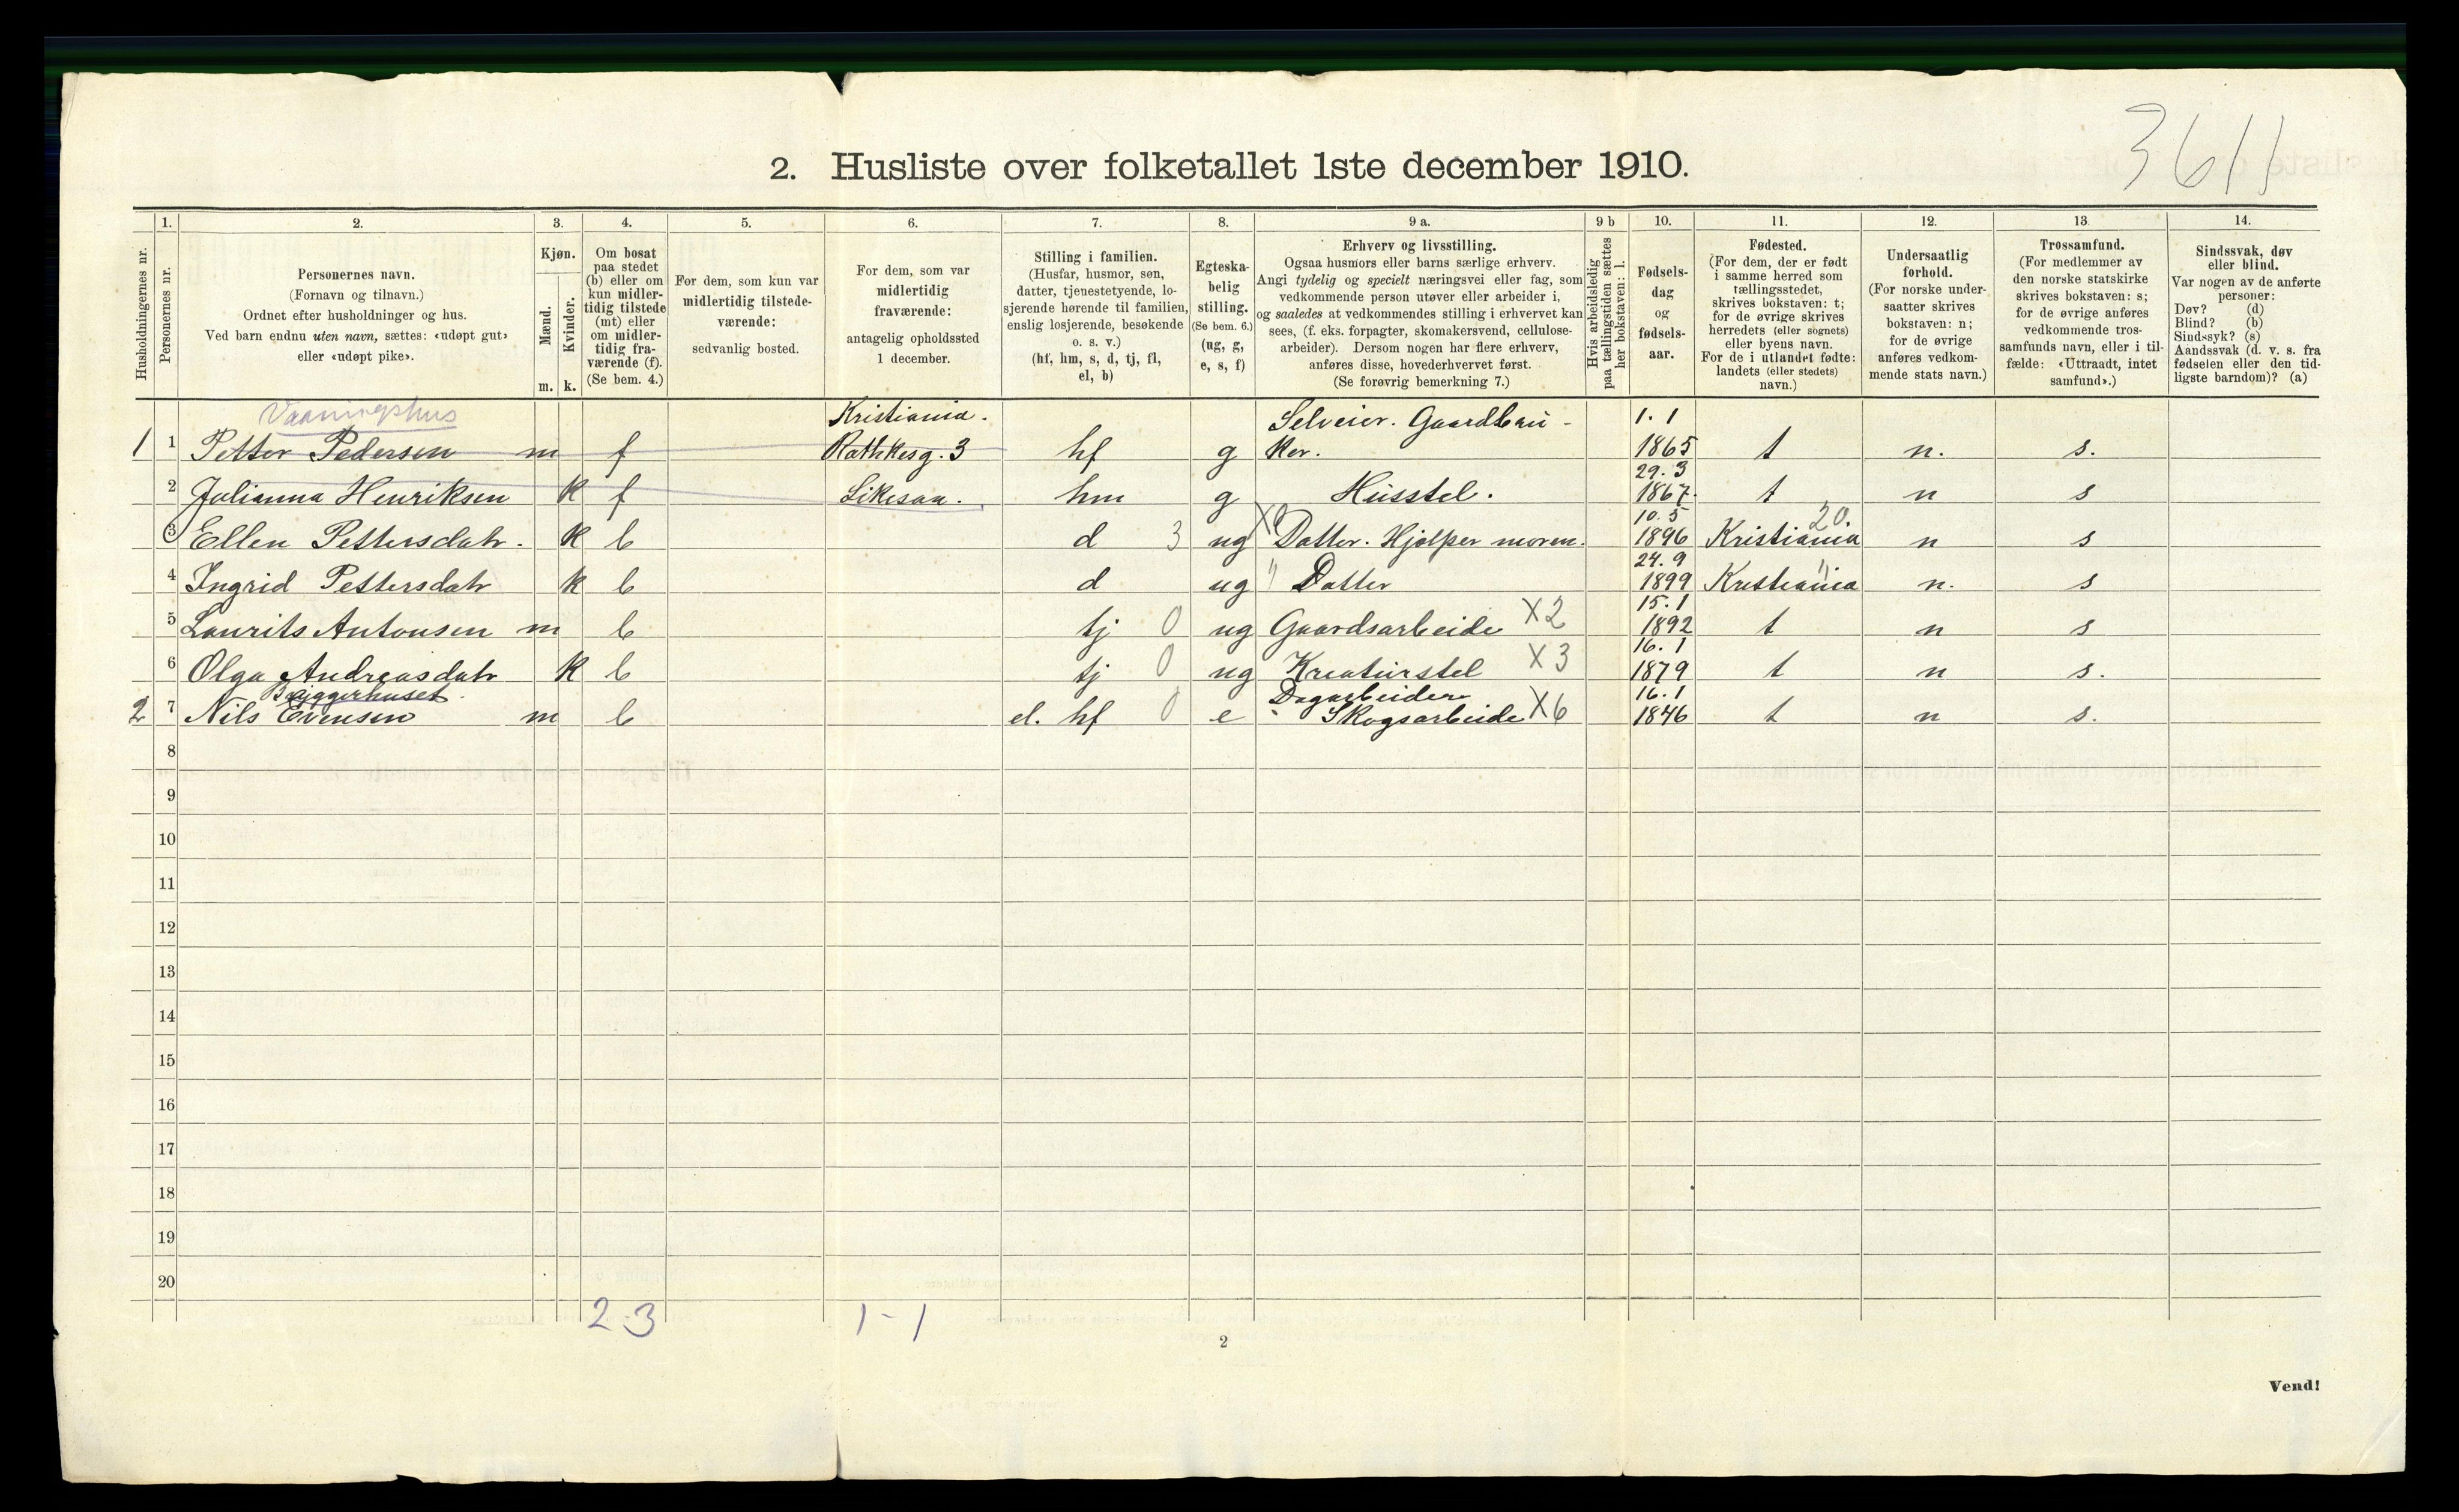 3611
2. Husliste over folketallet 1ste december 1910.
Husholdningernes nr.
1.
Personernes nr.
2.
Personernes navn.
(Fornavn og tilnavn.)
Ordnet efter husholdninger og hus.
Ved barn endnu uten navn, sættes: «udøpt gut»
eller «udøpt pike».
3.
Kjøn.
Mænd.
Kvinder.
m. k.
4.
Om bosat
paa stedet
(b) eller om
kun midler-
tidig tilstede
(mt) eller
om midler-
tidig fra-
værende (f).
(Se bem. 4.)
5.
For dem, som kun var
midlertidig tilstede-
værende:
sedvanlig bosted.
6.
For dem, som var
midlertidig
fraværende:
antagelig opholdssted
1 december.
7.
Stilling i familien.
(Husfar, husmor, søn,
datter, tjenestetyende, lo-
sjerende hørende til familien,
enslig losjerende, besøkende
o. s. v.)
(hf, hm, s, d, tj, fl,
el, b)
8.
Egteska-
belig
stilling.
(Se bem. 6.)
(ug, g,
e, s, f)
9 a.
Erhverv og livsstilling.
Ogsaa husmors eller barns særlige erhverv.
Angi tydelig og specielt næringsvei eller fag, som
vedkommende person utøver eller arbeider i,
og saaledes at vedkommendes stilling i erhvervet kan
sees, (f. eks. forpagter, skomakersvend, cellulose-
arbeider). Dersom nogen har flere erhverv,
anføres disse, hovederhvervet først.
(Se forøvrig bemerkning 7.)
9 b
Hvis arbeidsledig
paa tællingstiden sættes
her bokstaven: l.
10.
Fødsels-
dag
og
fødsels-
aar.
11.
Fødested.
(For dem, der er født
i samme herred som
tællingsstedet,
skrives bokstaven: t;
for de øvrige skrives
herredets (eller sognets)
eller byens navn.
For de i utlandet fødte:
landets (eller stedets)
navn.)
12.
Undersaatlig
forhold.
(For norske under-
saatter skrives
bokstaven: n;
for de øvrige
anføres vedkom-
mende stats navn.)
13.
Trossamfund.
(For medlemmer av
den norske statskirke
skrives bokstaven: s;
for de øvrige anføres
vedkommende tros-
samfunds navn, eller i til-
fælde: «Uttraadt, intet
samfund».)
14.
Sindssvak, døv
eller blind.
Var nogen av de anførte
personer:
Døv? (d)
Blind? (b)
Sindssyk? (s)
Aandssvak (d. v. s. fra
fødselen eller den tid-
ligste barndom)? (a)
Vaaningshus Kristiania. Selveier. Gaardbru- 1.1
1 1 Petter Pedersen m f Rathkesg. 3 hf g ker. 1865 t n. s.
29.3
2 Julianna Henriksen k f Likesaa. hm g Husstel. 1867 t n s
10.5 20.
3 Ellen Pettersdatr. k b d 3 ug Datter. Hjelper moren. 1896 Kristiania n s
24.9
4 Ingrid Pettersdatr k b d ug " Datter 1899 Kristiania n. s
15.1
5 Laurits Antonsen m b tj 0 ug Gaardsarbeide X2 1892 t n s
16.1
6 Olga Andreasdatr k b tj 0 ug Kreaturstel X3 1879 t n s.
Bryggerhuset Dagarbeider 16.1
2 7 Nils Evensen m b el. hf 0 e Skogsarbeide X6 1846 t n s.
8
9
10
11
12
13
14
15
16
17
18
19
20
2-3 1-1
2
Vend!